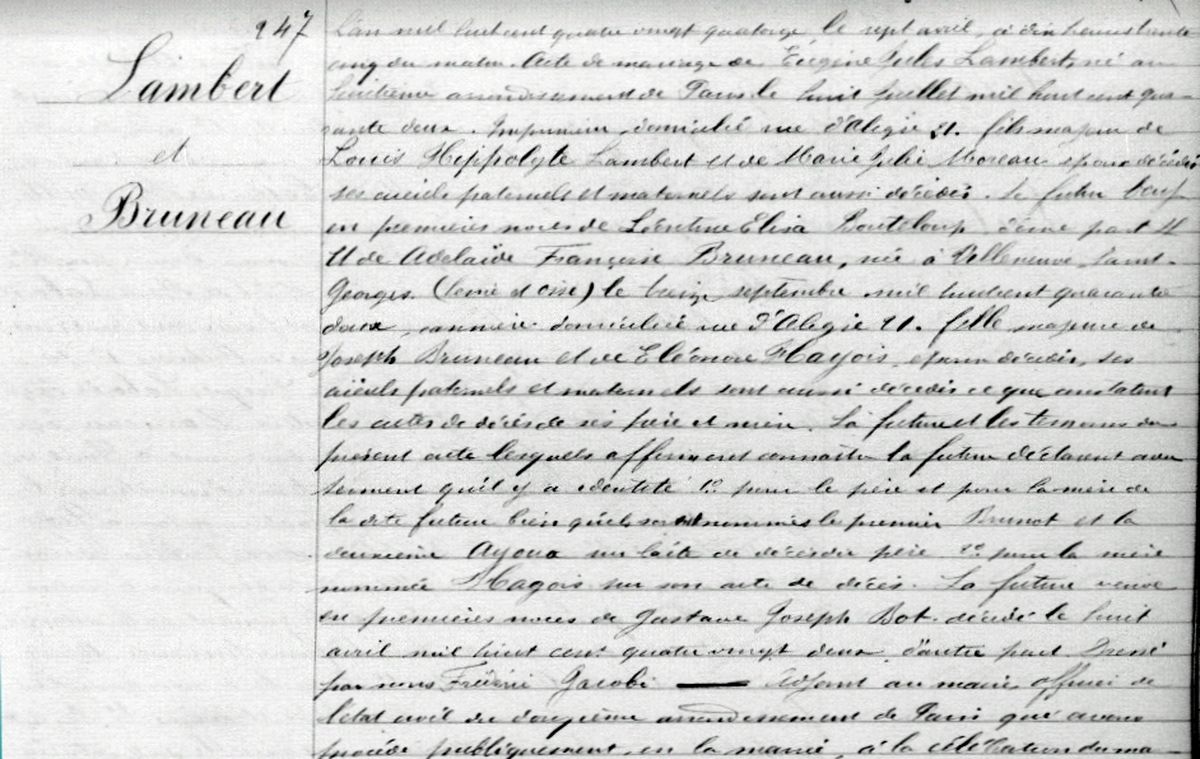 947
Lambert
et
Bruneau
L'an mil huit cent quatre vingt quatorze, le sept avril, à dix heures trente
cinq du matin. Acte de mariage de Eugène Jules Lambert, né au
huitième arrondissement de Paris le huit juillet mil huit cent qua-
rante deux. Imprimeur, domicilié rue d'Aligre 21. fils majeur de
Louis Hippolyte Lambert et de Marie Julie Moreau époux décédés
ses aïeuls paternels et maternels sont aussi décédés. Le futur veuf
en premières noces de Léontine Elisa Bouteloup d'une part. Et
Et de Adelaïde Françoise Bruneau, née à Villeneuve Saint-
Georges. (Seine et Oise) le treize septembre mil huit cent quarante
deux, domiciliée rue d'Aligre 21. fille majeure de
Joseph Bruneau et de Eléonore Hagois, époux décédés, ses
aïeuls paternels et maternels sont aussi décédés ce que constatent
les actes de décès de ses père et mère. La future et les témoins du
présent acte lesquels affirment connaître la future déclarent avec
serment qu'il y a identité 1º pour le père et pour la mère de
la dite future bien qu'ils soient nommés le premier Brunot et la
deuxième Ayoua sur l'acte de décès du père 2º pour la mère
nommée Magois sur son acte de décès. La future veuve
en premières noces de Gustave Joseph Bot décédé le huit
avril mil huit cent quatre vingt deux, d'autre part. Dressé
par nous Frédéric Jacobi adjoint au maire, officier de
l'état civil du douzième arrondissement de Paris qui avons
procédé publiquement en la mairie, à la célébration du ma-